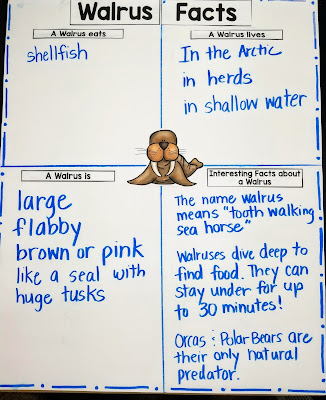 Walrus Facts
A Walrus eats
shellfish
A Walrus lives
In the Arctic
in herds
in shallow water
A Walrus is
large
flabby
brown or pink
like a seal with
huge tusks
Interesting Facts about
a Walrus
The name walrus
means "tooth walking
sea horse"
Walruses dive deep to
find food. They can
stay under for up
to 30 minutes!
Orcas & Polar Bears are
their only natural
predator.